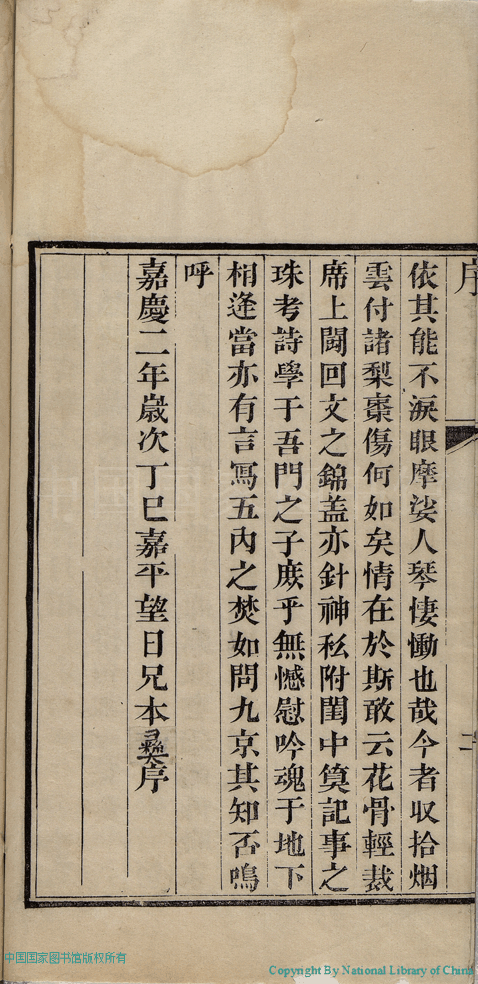 序
二
依其能不淚眼摩娑人琴悽慟也哉今者収拾烟
雲付諸梨棗傷何如矣情在於斯敢云花骨輕裁
席上閩回文之錦盖亦針神私附閨中筭記事之
珠考詩學于吾門之子庻乎無憾慰吟魂于地下
相逢當亦有言寫五内之焚如問九京其知否鳴
呼
嘉慶二年歳次丁巳嘉平望日兄本彝序
中国国家图书馆版权所有
Copyright By National Library of China